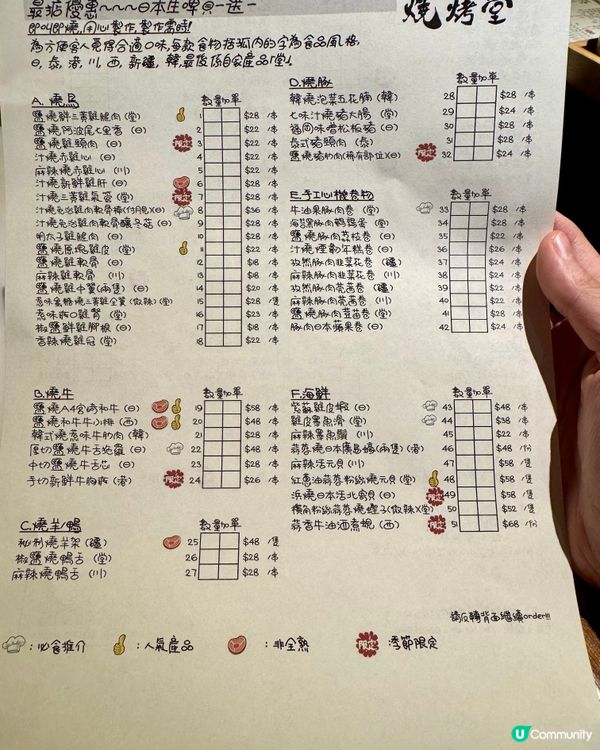 最抵優惠~~~日本生啤買一送一
燒烤堂
即叫即燒,用心製作,製作需時!
為方便客人覓得合適口味,每款食物括弧內的字為食品風格,
日,泰,港,川,西,新疆,韓,最後係自家產品「堂」
A. 燒鳥 數量加單
鹽燒鮮三黃雞腿肉(堂) 1 $28 /串
鹽燒阿波尾七里香(日) 2 $22 /串
鹽燒雞頸肉(日) 限定 3 $22 /串
汁燒赤雞心(日) 4 $22 /串
麻辣燒赤雞心(川) 5 $22 /串
汁燒新鮮雞肝(日) 6 $28 /串
汁燒三黃雞氣管(堂) 限定 7 $28 /串
汁燒免治雞肉軟骨棒(日) 8 $36 /串
汁燒免治雞肉軟骨釀冬菇(日) 9 $28 /串
明太子雞腿肉(日) 10 $28 /串
鹽燒原塊雞皮(堂) 11 $22 /串
鹽燒雞軟骨(日) 12 $8 /串
麻辣雞軟骨(川) 13 $8 /串
鹽燒雞中翼(兩隻)(日) 14 $20 /串
惹味蜜糖燒三黃雞全翼(微辣)(堂) 15 $28 /隻
惹味豉油雞腎(堂) 16 $23 /串
椒鹽鮮雞腳板(日) 17 $8 /串
香辣燒雞冠(堂) 18 $22 /串
B. 燒牛 數量加單
鹽燒A4宮崎和牛(日) 19 $58 /串
鹽燒和牛牛小排(西) 20 $48 /串
韓式燒惹味牛肋肉(韓) 21 $28 /串
厚切鹽燒牛舌(日) 22 $48 /串
中切鹽燒牛舌芯(日) 23 $28 /串
手切新鮮牛胸腩(港) 限定 24 $26 /串
C. 燒羊/鴨 數量加單
秘制燒羊架(疆) 25 $48 /隻
椒鹽燒鴨舌(堂) 26 $28 /串
麻辣燒鴨舌(川) 27 $28 /串
D. 燒豚 數量加單
韓燒泡菜五花腩(韓) 28 $28 /串
七味汁燒豬大腸(堂) 29 $24 /串
福岡味噌松板豬(日) 30 $28 /串
泰式豬頸肉(泰) 31 $28 /串
鹽燒豬肋肉(稀有部位)(日) 限定 32 $24 /串
E. 手工心機卷物 數量加單
牛油果豚肉卷(堂) 33 $28 /串
海苔豚肉鵪鶉蛋(堂) 34 $28 /串
鹽燒豚肉荔枝卷(日) 35 $22 /串
汁燒煙鴨年糕卷(日) 36 $26 /串
孜然豚肉韭菜花卷(疆) 37 $24 /串
麻辣豚肉韭菜花卷(川) 38 $24 /串
孜然豚肉芫茜卷(疆) 39 $22 /串
麻辣豚肉芫茜卷(川) 40 $22 /串
鹽燒豚肉萵苗卷(堂) 41 $28 /串
豚肉日本蘋果卷(日) 42 $24 /串
F. 海鮮 數量加單
紫蘇雞皮蝦(日) 43 $48 /串
雞皮墨魚滑(堂) 44 $38 /串
麻辣墨魚鬚(川) 45 $22 /串
蒜蓉燒日本廣島蠔(兩隻)(港) 46 $48 /份
麻辣活元貝(川) 47 $58 /隻
紅蔥油蒜蓉粉絲燒元貝(堂) 48 $58 /隻
浜燒日本活北寄貝(日) 限定 49 $58 /隻
獨角粉絲蒜蓉燒蟶子(微辣)(堂) 限定 50 $52 /隻
蒜香牛油酒煮蜆(西) 限定 51 $68 /份
請反轉背面繼續order!!!
:必食推介 :人氣產品 :非全熟 限定:季節限定
U Community